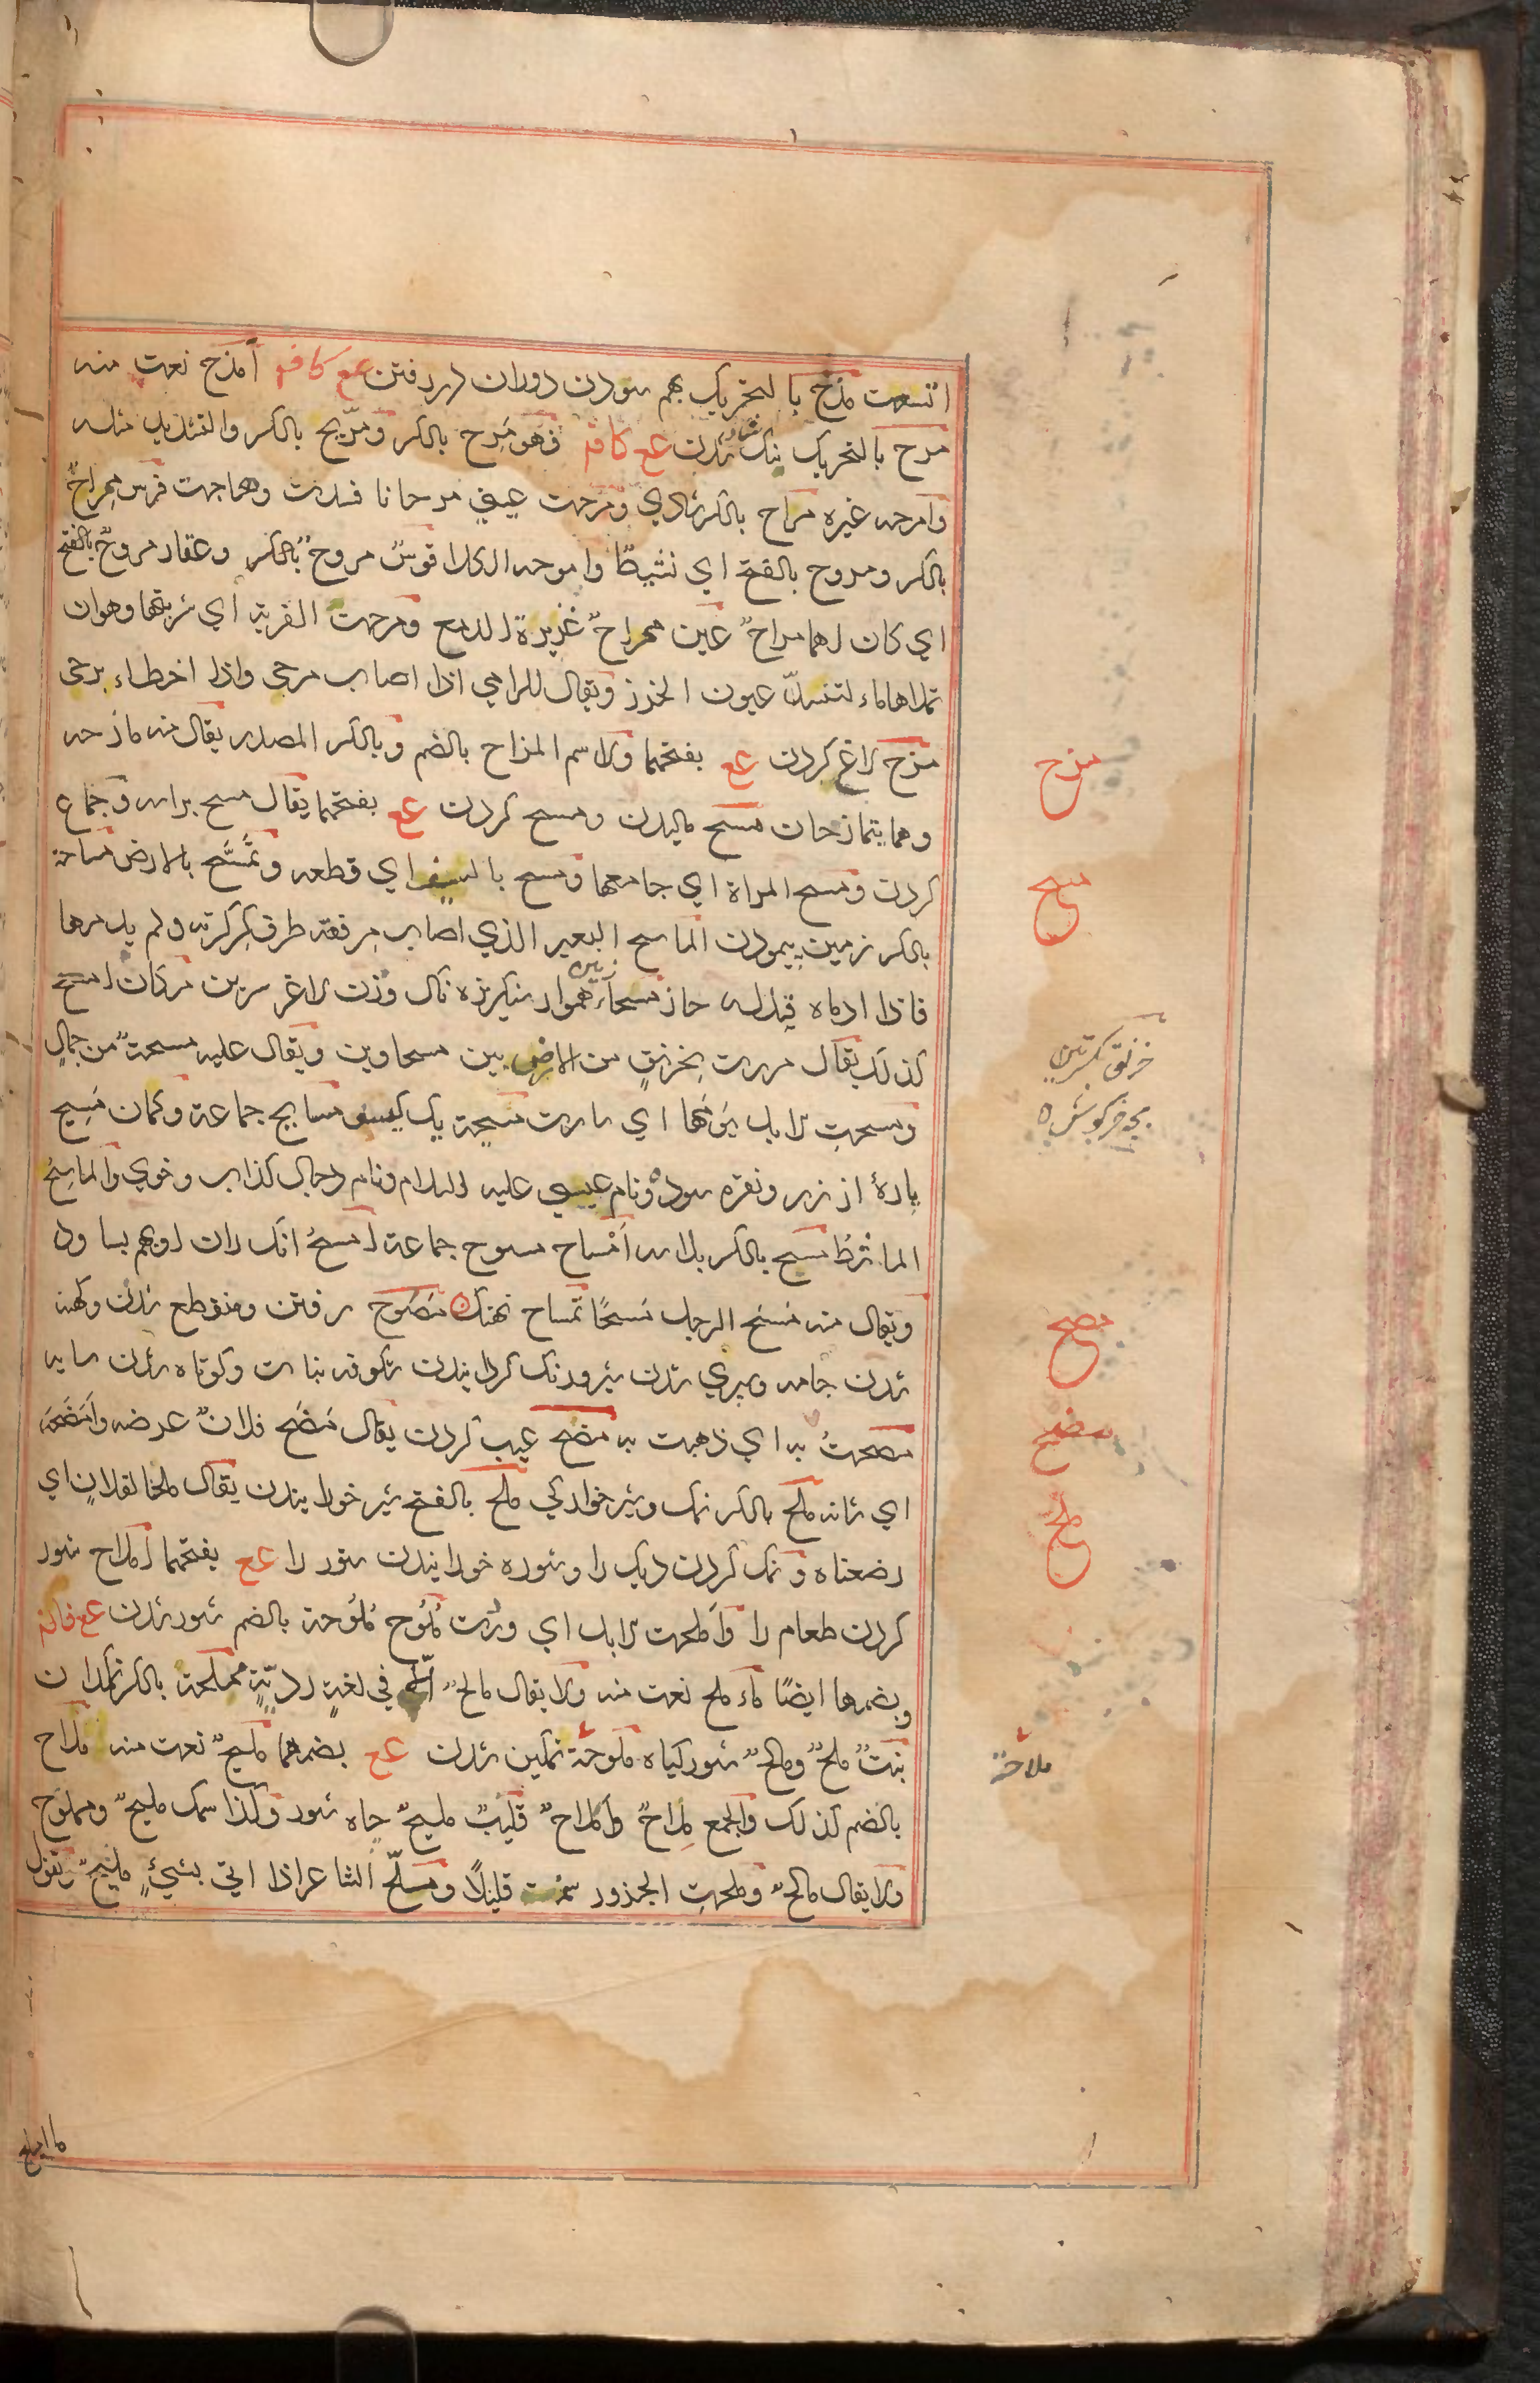 اتسعت مذح بالتحریک بهم سودن دوران در رفتن عع کافم أمذح نعت منه
مرح بالتحریک نیک شاد شدن عع کافم فهو مرح بالکسر ومریح بالکسر والتشدید مثله
وامرحه غیره مراح بالکسر شادی ومرحت عینی مرحانا فسدت وهاجت فرس ممراح
بالکسر ومروح بالفتح ای نشیطا وامرحه الکلا قوس مروح بالکسر وعقار مروح بالفتح
ای کان لهما مراح عین ممراح غزیرة الدمع ومرحت القربة ای شربتها وهو ان
تملاها ماء لتنسد عیون الخرز ویقال للرامی اذا اصاب مرحی واذا اخطاء برحی
مزح لاغ کردن عع بفتحهما والاسم المزاح بالضم وبالکسر المصدر یقال منه مازحه
وهما یتمازحان مسح مالیدن ومسح کردن عع بفتحهما یقال مسح براسه وجماع
کردن ومسح المراة ای جامعها ومسح بالسیف ای قطعه وتمسح بالارض مساحة
بالکسر زمین پیمودن الماسح البعیر الذی اصاب مرفقه طرف کرکرته ولم یدمها
فاذا ادماه قیل له حاز مسحاء زمین هموار سنکریزه ناک وزن لاغر سرین مرکان امسح
کذلک یقال مررت بخرنق من الارض بین مسحاوین ویقال علیه مسحة من جمال
ومسحت الابل یومها ای سارت مسیحة یک کیسو مسایح جماعة وکمان مسیح
پارهٔ از زر ونقره سوده ونام عیسی علیه السلام ونام دجال کذاب وخوی والماسح
الماشط مسح بالکسر پلاس امساح مسوح جماعة امسح انک ران او بهم بساود
ویقال منه مسح الرجل مسحا تمساح نهنک مصوح رفتن ومنقطع شدن وکهنه
شدن جامه وسپری شدن شیر ودنک کردانیدن شکوفه نبات وکوتاه شدن سایه
مصحت به ای ذهبت به مضح عیب کردن یقال مضح فلان عرضه وامضحه
ای شانه ملح بالکسر نمک وشیرخوارکی ملح بالفتح شیر خورانیدن یقال ملحنا لفلان ای
رضعناه ونمک کردن دیک را وشوره خورانیدن ستور را عع بفتحهما املاح شور
کردن طعام را واملحت الابل ای وردت ملوح ملوحة بالضم شور شدن عع فافم
وبضمها ایضا ماء ملح نعت منه ولا یقال مالح الا فی لغة ردیة مملحة بالکسر نمکدان
نبت ملح ومالح شور کیاه ملوحة نمکین شدن عع بضمهما ملیح نعت منه ملاح
بالضم کذلک والجمع ملاح واملاح قلیب ملیح چاه شور وکذا سمک ملیح ومملوح
ولا یقال مالح وملحت الجزور سمنت قلیلا وملح الشاعر اذا اتی بشیء ملیح یقول
مزح
مسح
خرنق
بچه خرکوش
مصح
مضح
ملح
ملاحة
ما املح